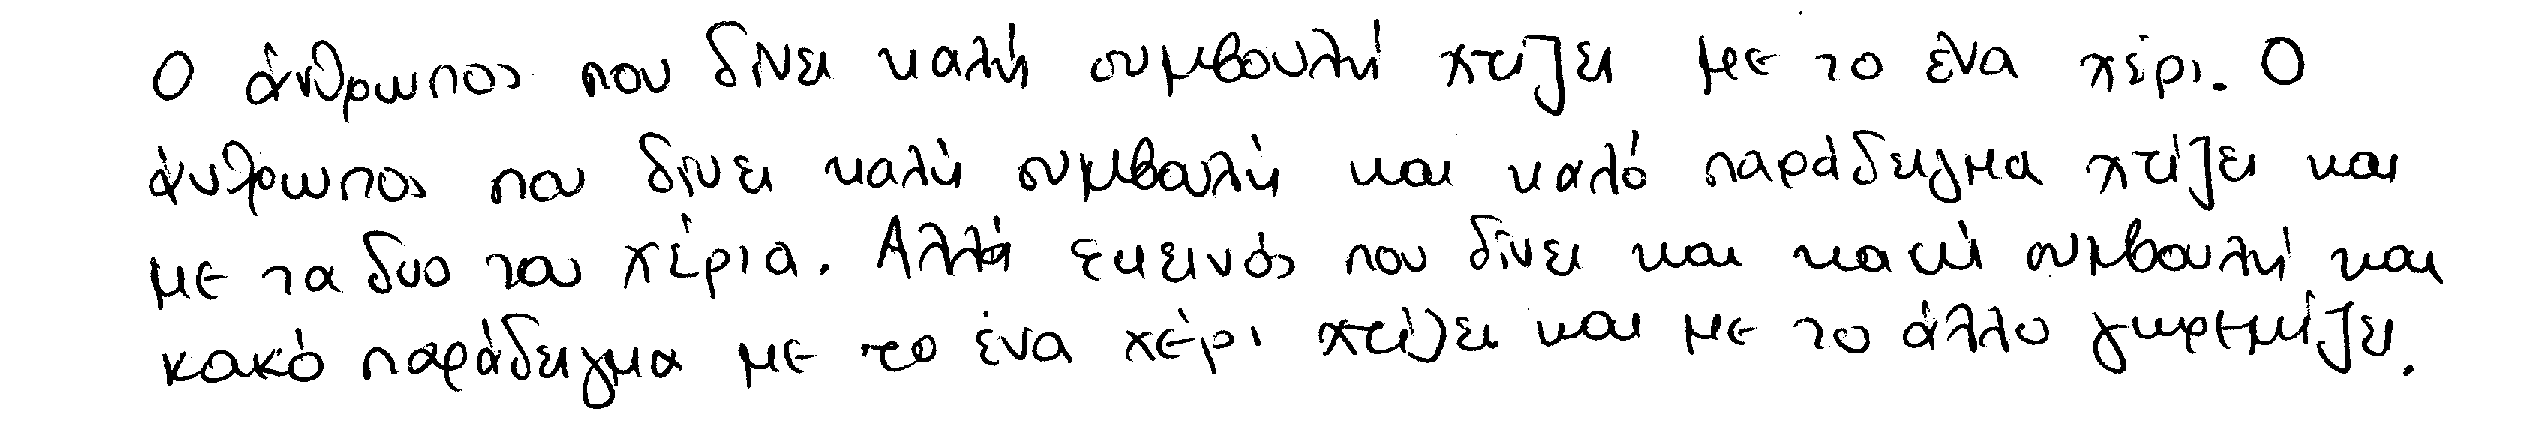 Ο άνθρωπος που δίνει καλή συμβουλή χτίζει με το ένα χέρι. Ο
άνθρωπος που δίνει καλή συμβουλή και καλό παράδειγμα χτίζει και
με τα δυο του χέρια. Αλλά εκεινός που δίνει και κακή συμβουλή και
κακό παράδειγμα με το ένα χέρι χτίζει και με το άλλο γκρεμίζει.